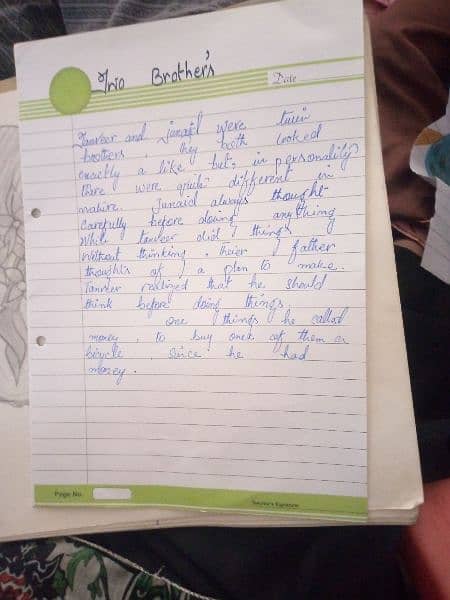 Trio Brother's
Date
Tanveer and junaid were twin
brothers. they both looked
exactly a like but in personality
there were quite different in
nature. Junaid always thought
carefully before doing anything
while tanveer did things
without thinking. theier father
thoughts of a plan to make.
Tanveer realized that he should
think before doing things.
one things he called
money. to buy once of them a
bicycle. since he had
money.
Page No.
Teacher's Signature